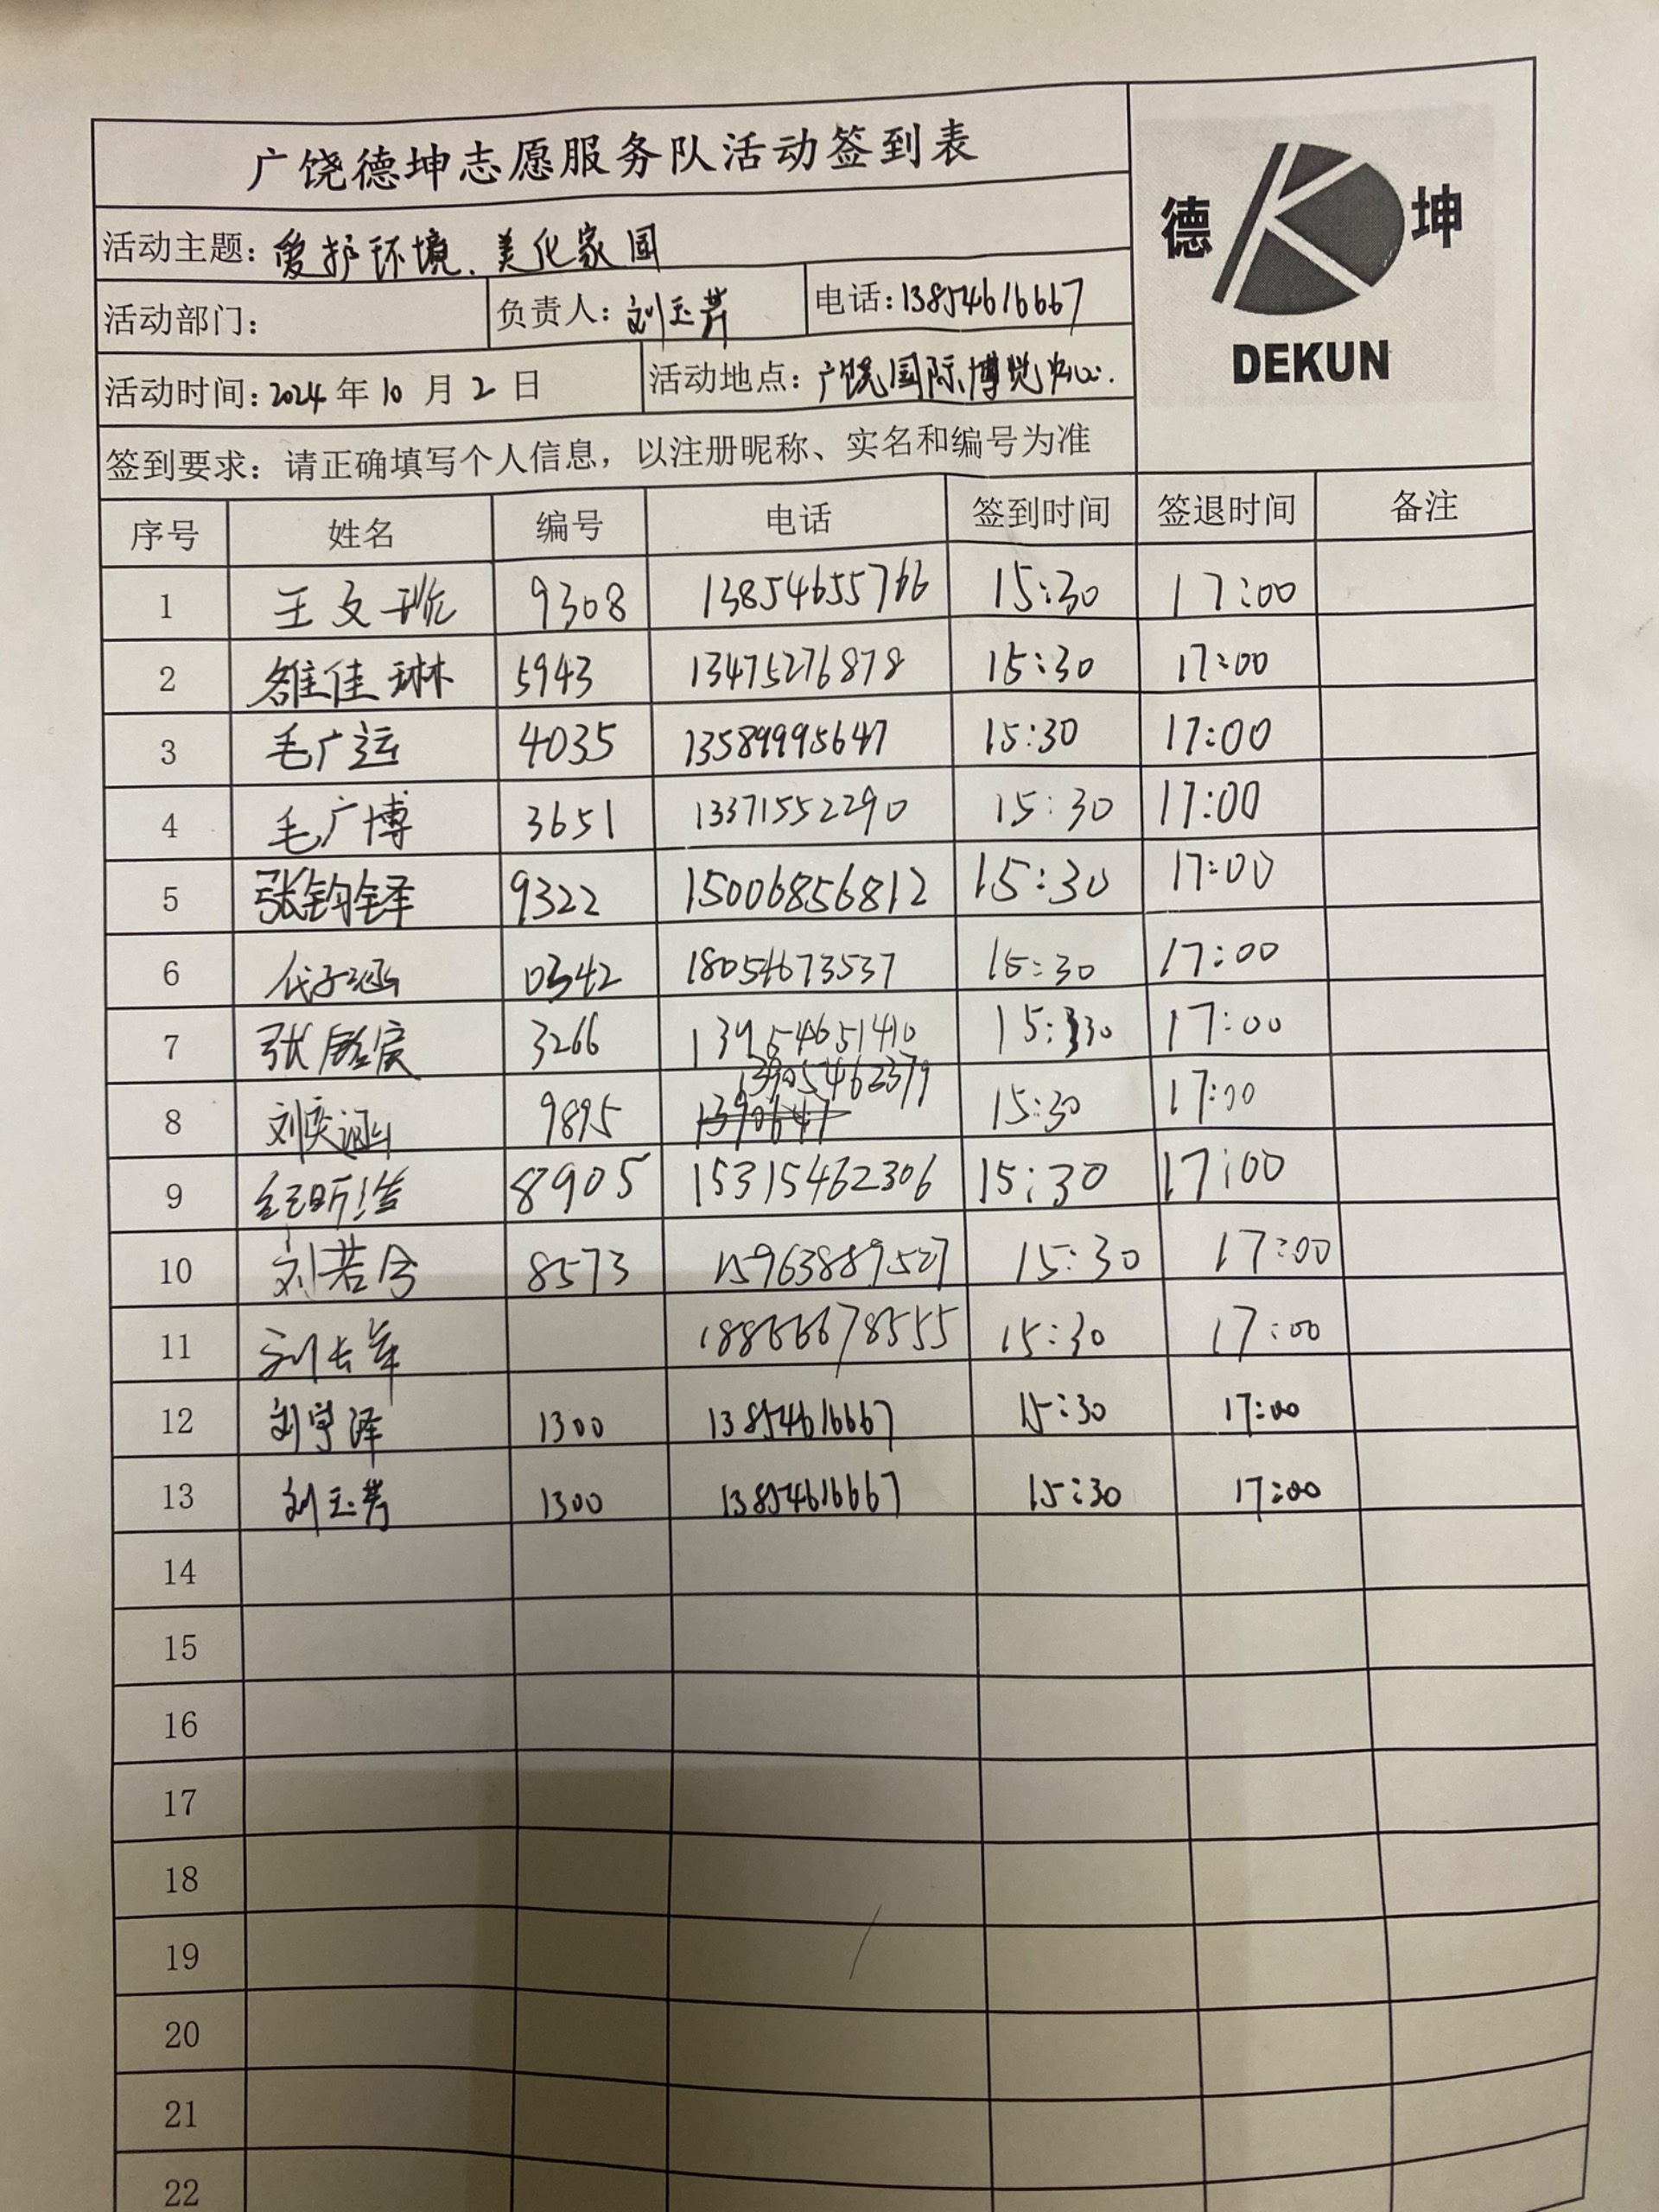 广饶德坤志愿服务队活动签到表
德 坤
DEKUN
活动主题：爱护环境、美化家园
活动部门： 负责人：刘玉芳 电话：13854616667
活动时间：2024年10月2日 活动地点：广饶国际博览中心.
签到要求：请正确填写个人信息，以注册昵称、实名和编号为准
序号 姓名 编号 电话 签到时间 签退时间 备注
1 王文 9308 13854655766 15:30 17:00
2 雒佳琳 5943 13475276878 15:30 17:00
3 毛广运 4035 13589995647 15:30 17:00
4 毛广博 3651 13371552290 15:30 17:00
5 张钧铎 9322 15006856812 15:30 17:00
6 代子涵 0342 18054673537 15:30 17:00
7 张 3266 15:30 17:00
8 刘奕涵 9895 13905462379 15:30 17:00
9 8905 15315462306 15:30 17:00
10 刘若兮 8573 15963889527 15:30 17:00
11 刘长军 18866678555 15:30 17:00
12 刘宇泽 1300 13854616667 15:30 17:00
13 刘玉芳 1300 13854616667 15:30 17:00
14
15
16
17
18
19
20
21
22